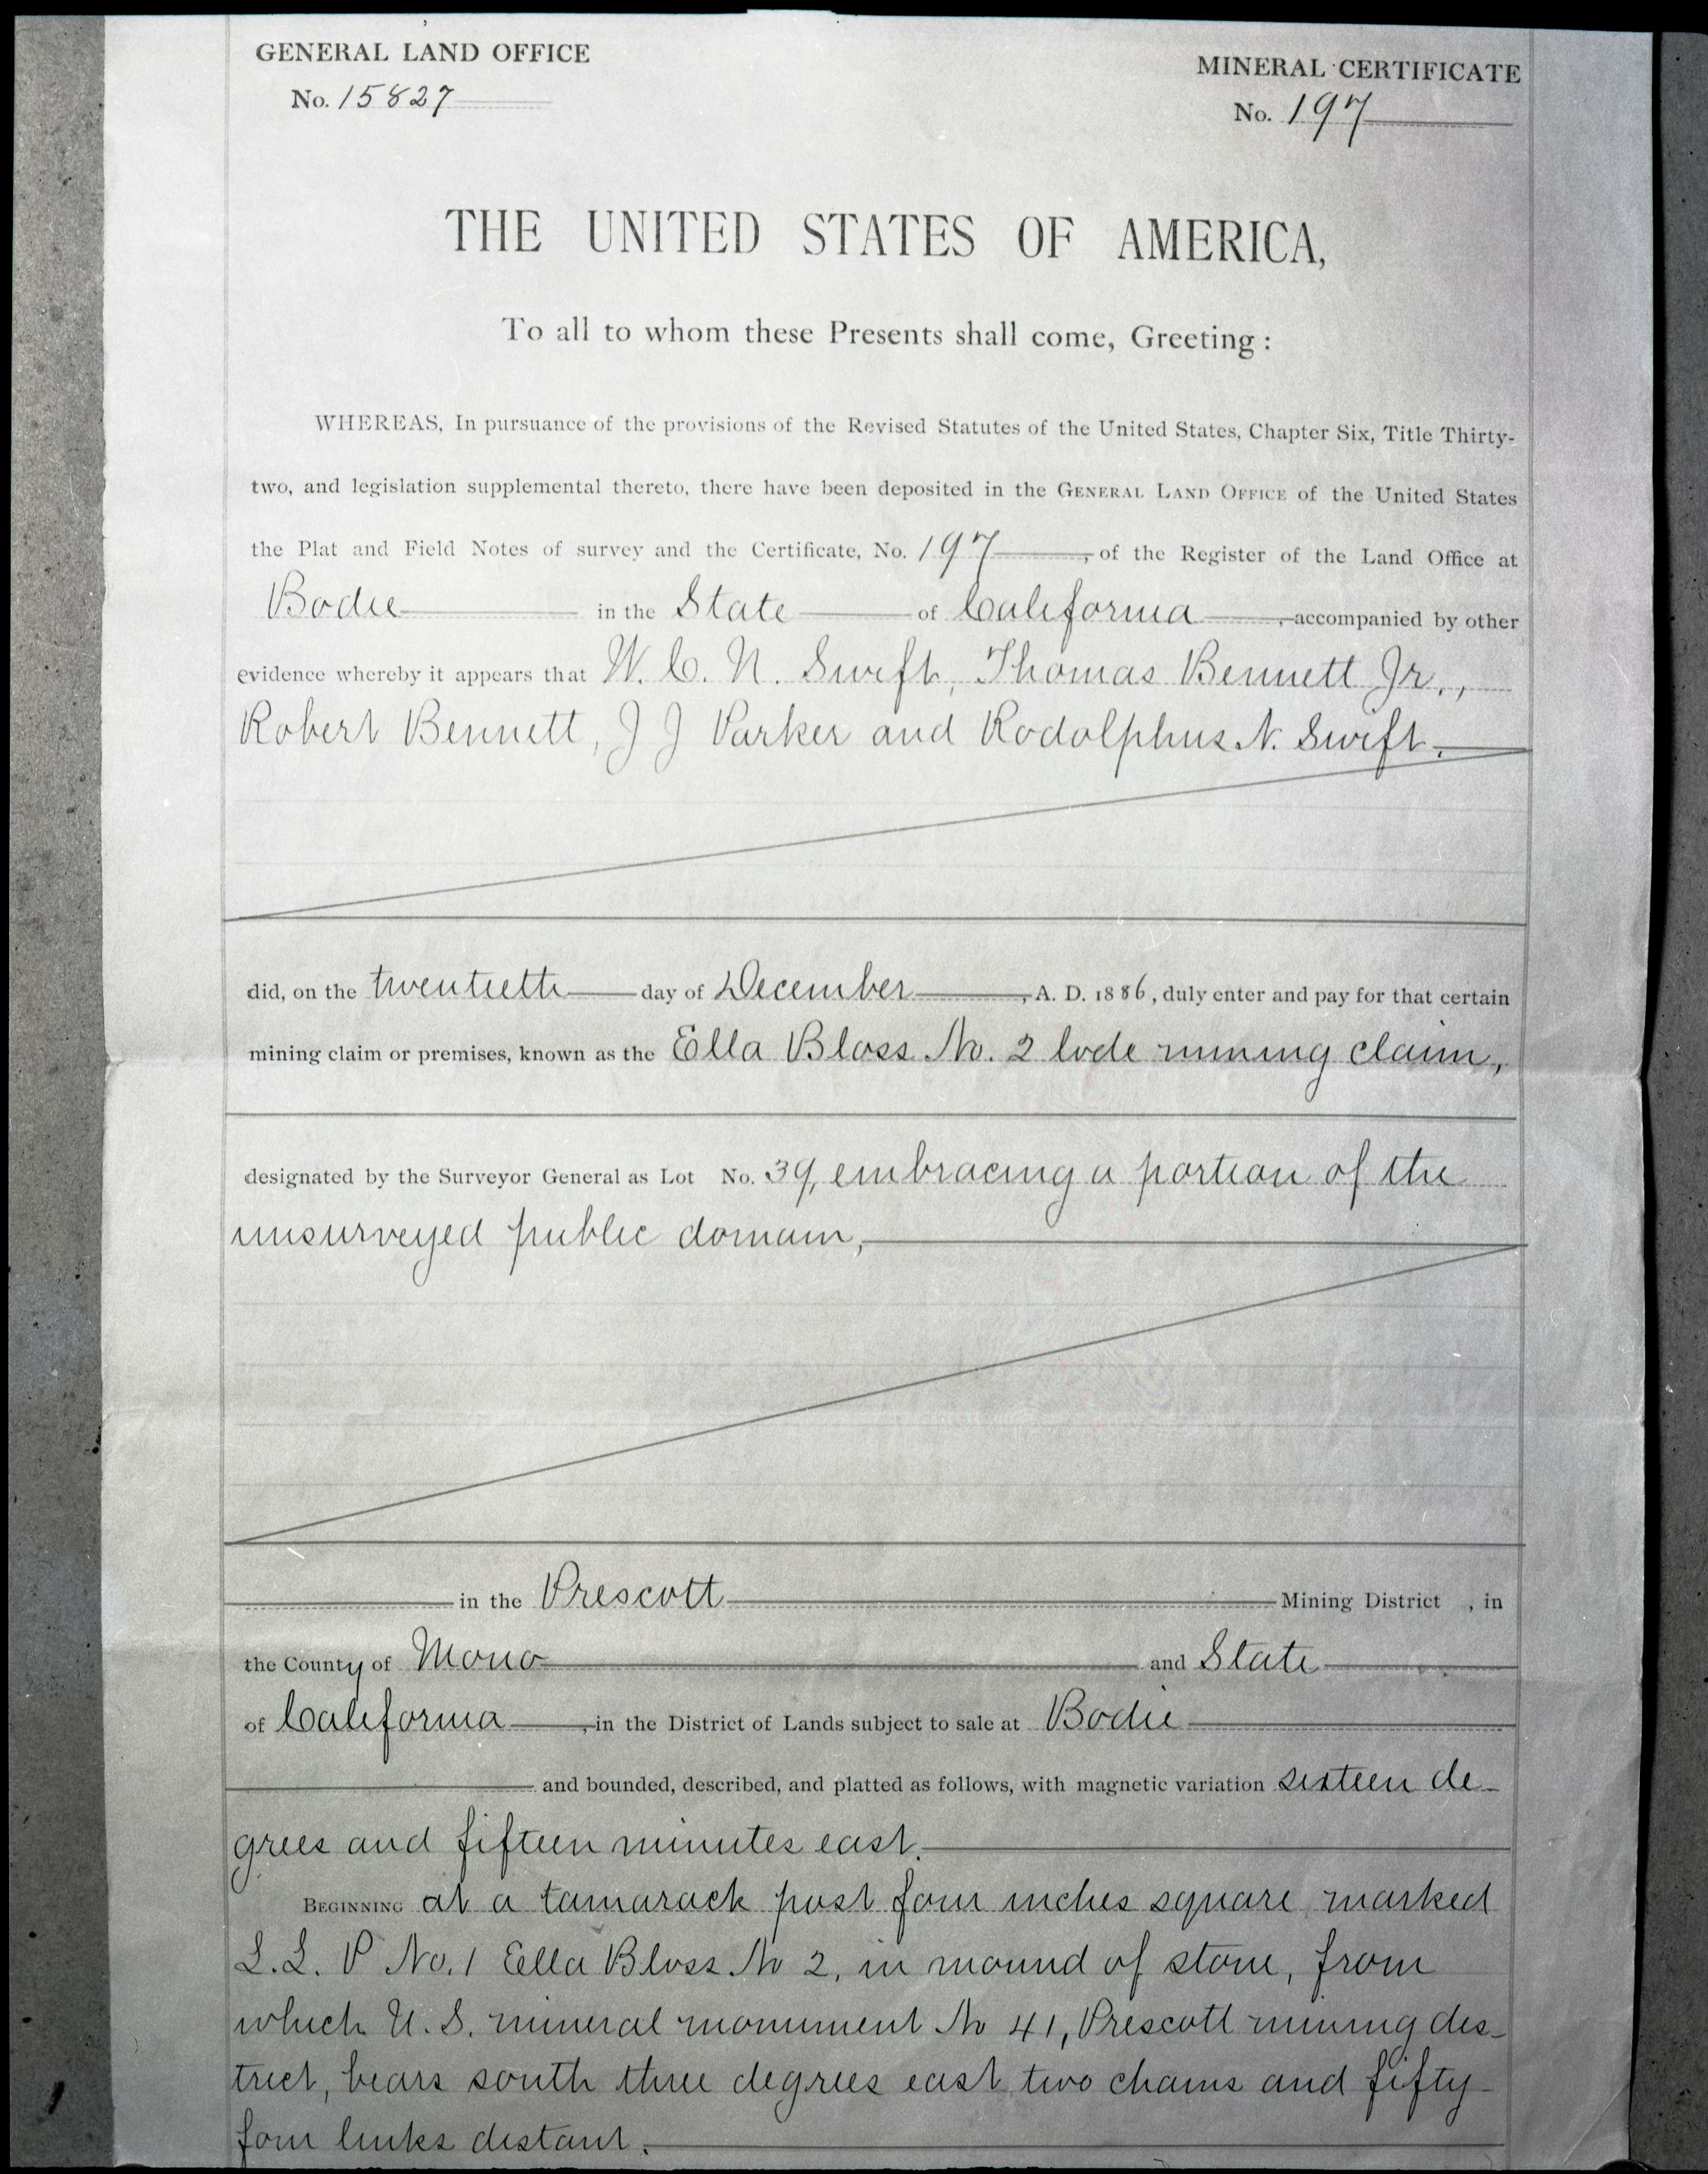 GENERAL LAND OFFICE
No. 15827
MINERAL CERTIFICATE
No. 197
THE UNITED STATES OF AMERICA,
To all to whom these Presents shall come, Greeting:
WHEREAS, In pursuance of the provisions of the Revised Statutes of the United States, Chapter Six, Title Thirty-
two, and legislation supplemental thereto, there have been deposited in the GENERAL LAND OFFICE of the United States
the Plat and Field Notes of survey and the Certificate, No. 197, of the Register of the Land Office at
Bodie in the State of California, accompanied by other
evidence whereby it appears that W. C. N. Swift, Thomas Bennett Jr.,
Robert Bennett, J J Parker and Rodolphus N. Swift.
did, on the twentieth day of December, A. D. 1886, duly enter and pay for that certain
mining claim or premises, known as the Ella Bloss No. 2 lode mining claim,
designated by the Surveyor General as Lot No. 39, embracing a portion of the
unsurveyed public domain,
in the Prescott Mining District, in
the County of Mono and State
of California, in the District of Lands subject to sale at Bodie
and bounded, described, and platted as follows, with magnetic variation sixteen de-
grees and fifteen minutes east.
BEGINNING at a tamarack post four inches square marked
L.L. P No. 1 Ella Bloss No 2, in mound of stone, from
which U. S. mineral monument No 41, Prescott mining dis-
trict, bears south three degrees east two chains and fifty-
four links distant.